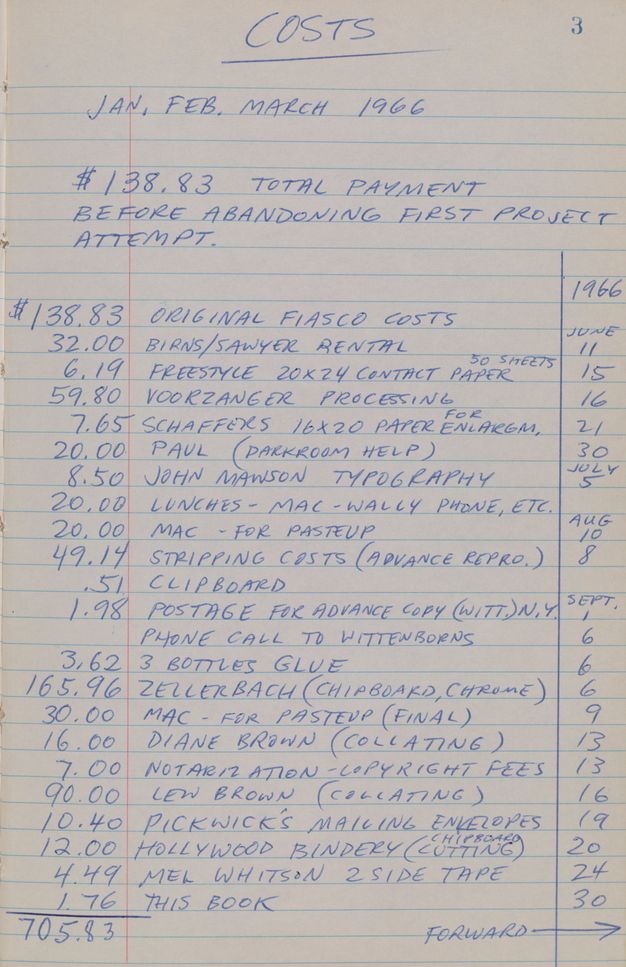 COSTS 3
JAN. FEB. MARCH 1966
$138.83 TOTAL PAYMENT
BEFORE ABANDONING FIRST PROJECT
ATTEMPT.
1966
$138.83 ORIGINAL FIASCO COSTS
JUNE
32.00 BIRNS/SAWYER RENTAL 11
6.19 FREESTYLE 20X24 CONTACT PAPER 50 SHEETS 15
59.80 VOORZANGER PROCESSING 16
7.65 SCHAFFERS 16X20 PAPER FOR ENLARGM. 21
20.00 PAUL (DARKROOM HELP) 30
JULY
8.50 JOHN MAWSON TYPOGRAPHY 5
20.00 LUNCHES - MAC - WALLY PHONE, ETC.
AUG
20.00 MAC - FOR PASTEUP 10
49.14 STRIPPING COSTS (ADVANCE REPRO.) 8
.51 CLIPBOARD
SEPT.
1.98 POSTAGE FOR ADVANCE COPY (WITT.) N.Y. 1
PHONE CALL TO WITTENBORNS 6
3.62 3 BOTTLES GLUE 6
165.96 ZELLERBACH (CHIPBOARD, CHROME) 6
30.00 MAC - FOR PASTEUP (FINAL) 9
16.00 DIANE BROWN (COLLATING) 13
7.00 NOTARIZATION - COPYRIGHT FEES 13
90.00 LEW BROWN (COLLATING) 16
10.40 PICKWICK'S MAILING ENVELOPES 19
12.00 HOLLYWOOD BINDERY (CHIPBOARD CUTTING) 20
4.49 MEL WHITSON 2 SIDE TAPE 24
1.76 THIS BOOK 30
705.83 FORWARD →